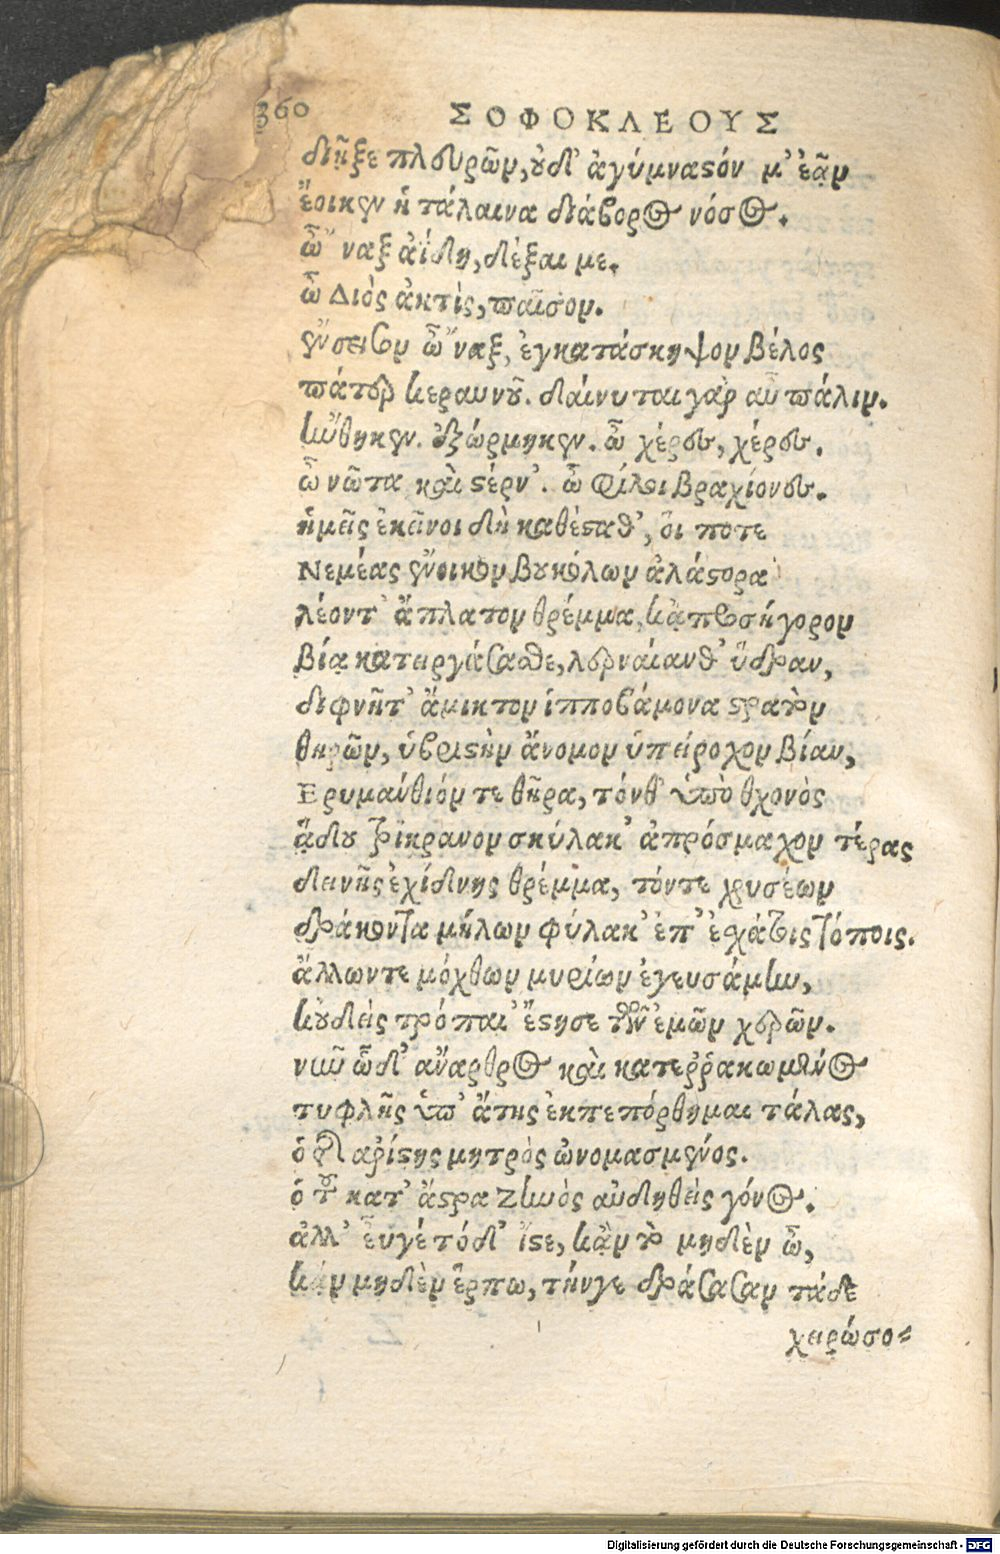 360 ΣΟΦΟΚΛΕΟΥΣ
διῇξε πλευρῶν, οὐδ' ἀγύμναστόν μ' ἐᾷν
ἔοικεν ἡ τάλαινα διάβορος νόσος.
ὦ 'ναξ ἀΐδη, δέξαι με.
ὦ Διὸς ἀκτὶς, παῖσον.
ἔνσεισον ὦ 'ναξ, ἐγκατάσκηψον βέλος
πάτερ κεραυνοῦ. δαίνυται γὰρ αὖ πάλιν.
ἤνθηκεν. ἐξώρμηκεν. ὦ χέρες, χέρες.
ὦ νῶτα καὶ στέρν'. ὦ φίλοι βραχίονες.
ἡμεῖς ἐκεῖνοι δὴ καθέσταθ', οἵ ποτε
Νεμέας ἔνοικον βουκόλων ἀλάστορα
λέοντ' ἄπλατον θρέμμα, κἀπροσήγορον
βίᾳ κατειργάσασθε, λερναίαν θ' ὕδραν,
διφυῆ τ' ἄμικτον ἱπποβάμονα στρατὸν
θηρῶν, ὑβριστὴν ἄνομον ὑπείροχον βίαν,
Ερυμάνθιόν τε θῆρα, τόν θ' ὑπὸ χθονὸς
ᾅδου τρίκρανον σκύλακ' ἀπρόσμαχον τέρας
δεινῆς ἐχίδνης θρέμμα, τόν τε χρυσέων
δράκοντα μήλων φύλακ' ἐπ' ἐσχάτοις τόποις.
ἄλλων τε μόχθων μυρίων ἐγευσάμην,
κοὐδεὶς τρόπαι' ἔστησε τῶν ἐμῶν χερῶν.
νῦν ὧδ' ἄναρθρος καὶ κατεῤῥακωμένος
τυφλῆς ὑπ' ἄτης ἐκπεπόρθημαι τάλας,
ὁ τῆς ἀρίστης μητρὸς ὠνομασμένος.
ὁ τοῦ κατ' ἄστρα Ζηνὸς αὐδηθεὶς γόνος.
ἀλλ' εὖ γέ τόδ' ἴστε, κἂν τὸ μηδὲν ὦ,
κἂν μηδὲν ἕρπω, τήν γε δράσασαν τάδε
χειρώσο-
Digitalisierung gefördert durch die Deutsche Forschungsgemeinschaft - DFG